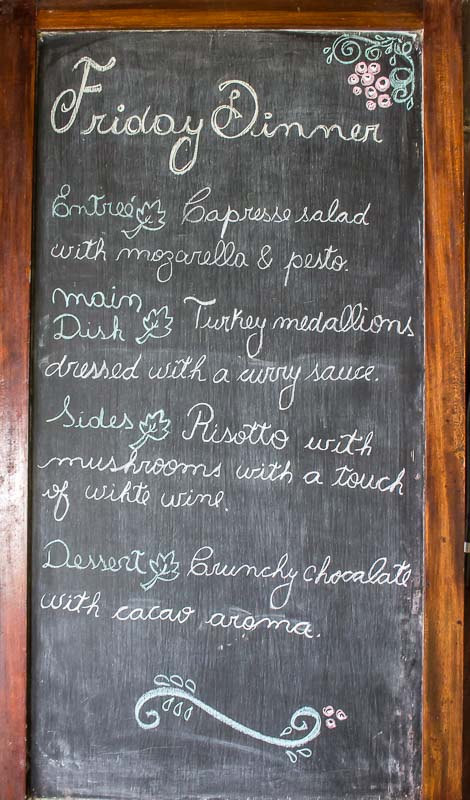 Friday Dinner
Entreé Capresse salad
with mozarella & pesto.
main
Dish Turkey medallions
dressed with a curry sauce.
Sides Risotto with
mushrooms with a touch
of wihte wine.
Dessert Crunchy chocalate
with cacao aroma.